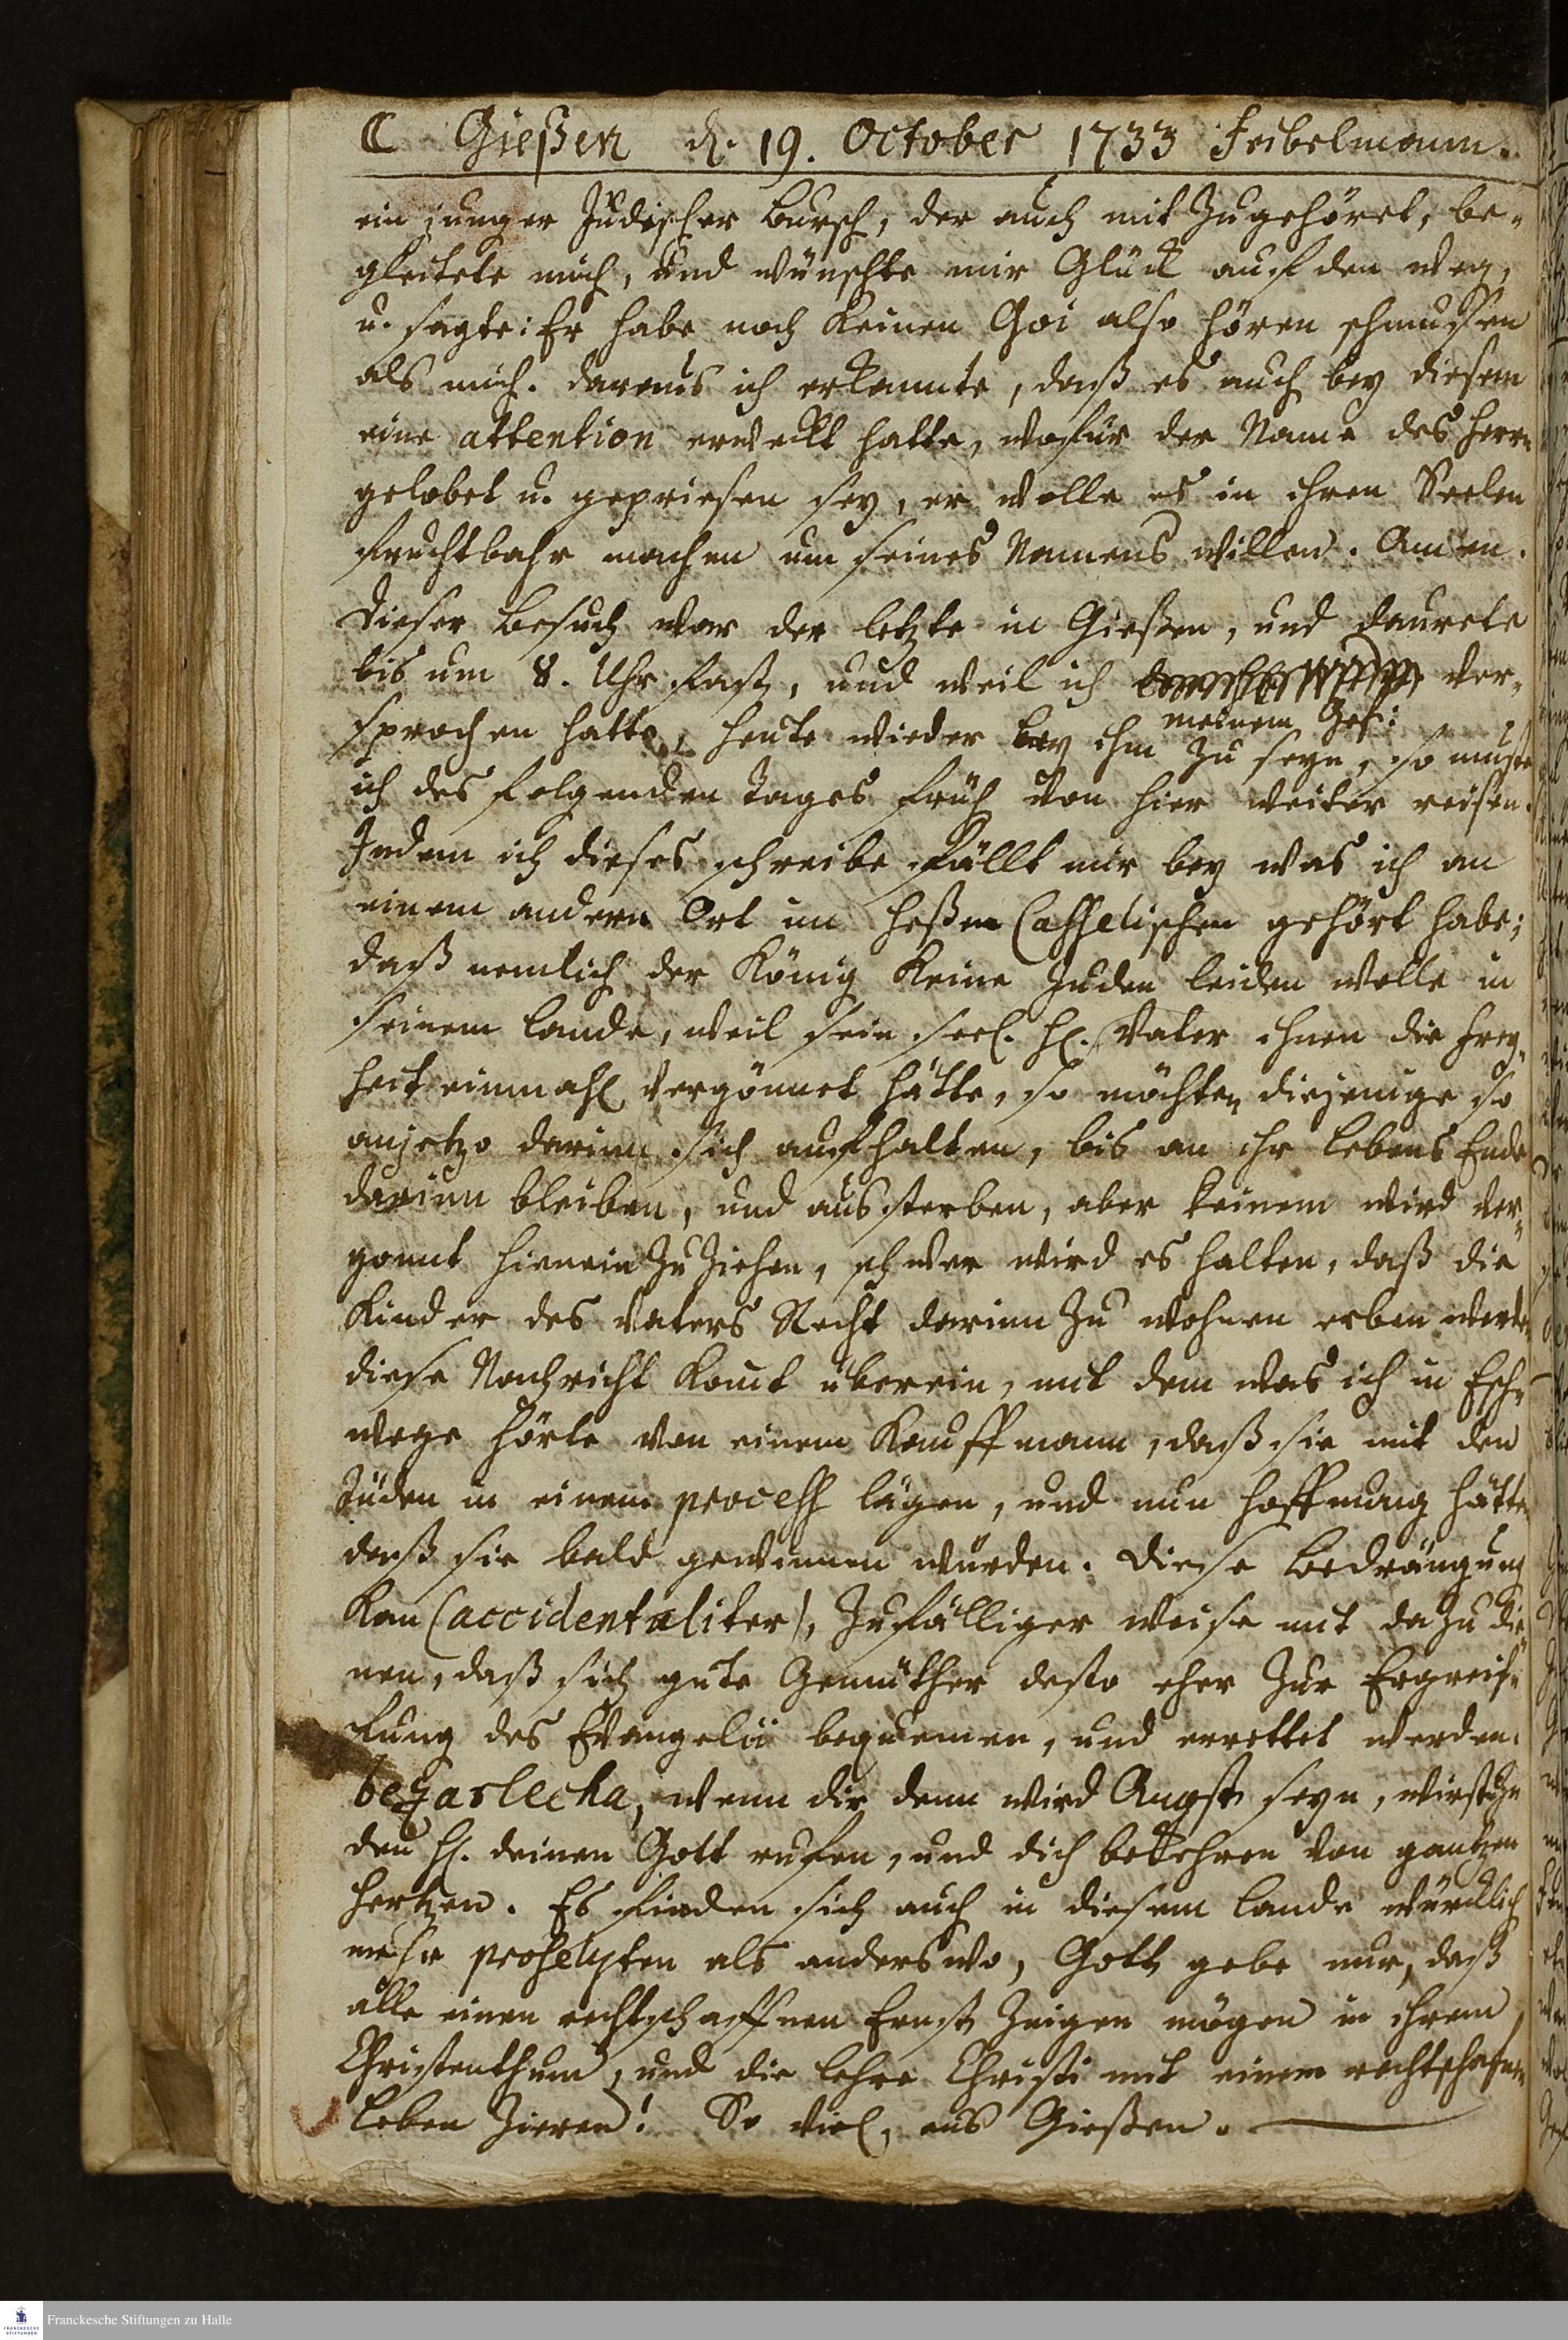 C Gießen d. 19. October 1733 Feibelmann.
ein junger Jüdischer Bursch, der auch mit Zugehöret, be-
gleitete mich, und wünschte mir Glück auf den weg,
u. sagte: Er habe noch keinen Goi also hören schmussen
als mich. daraus ich erkannte, daß es auch bey diesem
eine attention erweckt hatte, wofür der Name des Herrn
gelobet u. gepriesen sey, er wolle es in ihren Seelen
fruchtbahr machen um seines Namens willen. Amen.
Dieser Besuch war der letzte in Gießen, und daurete
bis um 8. Uhr fast, und weil ich ver-
meinem Gef:
sprochen hatte, heute wieder bey ihm zu seyn, so muste
ich des folgenden Tages früh von hier weiter reisen.
Indem ich dieses schreibe fällt mir bey was ich an
einem andern Ort im Heßen Casselischen gehört habe;
daß nemlich der König keine Juden leiden wolle in
seinem Lande, weil sein seel. H. Vater ihnen die Frey-
heit einmahl vergönnet hätte, so möchten diejenige so
anjetzo darinn sich aufhalten, bis an ihr Lebens Ende
darinn bleiben, und aussterben, aber keinem wird ver-
gönnt hienein zu ziehen, schwer wird es halten, daß die
Kinder des Vaters Recht darinn zu wohnen erben werden
diese Nachricht komt überein, mit dem was ich in Esch-
wege hörte von einem Kauffmann, daß sie mit den
Jüden in einem process lägen, und nun Hoffnung hätten
daß sie bald gewinnen würden. Diese Bedrängung
Kan (accidentaliter), zufälliger weise mit dazu die-
nen, daß sich gute Gemüther desto eher zur Ergreif-
fung des Evangelii bequemen, und errettet werden.
bezarlecha, wenn dir denn wird Angst seyn, wirstu
den H. deinen Gott rufen, und dich bekehren von gantzen
Hertzen. Es finden sich auch in diesem Lande würcklich
mehr proselyten als anderswo, Gott gebe nur, daß
alle einen rechtschaffnen Ernst zeigen mögen in ihrem
Christenthum, und die Lehre Christi mit einem rechtschafnen
Leben zieren! So viel, aus Gießen.
Franckesche Stiftungen zu Halle